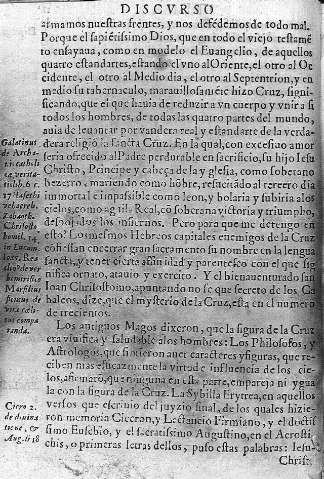 DISCVRSO
armamos nuestras frentes, y nos defẽdemos de todo mal.
Porque el sapiẽtissimo Dios, que en todo el viejo testamẽ
to ensayaua, como en modelo el Euangelio, de aquellos
quatro estandartes, estando el vno al Oriente, el otro al Oc
cidente, el otro al Medio dia, el otro al Septentrion, y en
medio su tabernaculo, marauillosamẽte hizo Cruz, signi-
ficando, que el que hauia de reduzir a vn cuerpo y vnir a si
todos los hombres, de todas las quatro partes del mundo,
auia de leuantar por vandera real y estandarte de la verda-
dera religiõ la sancta Cruz. En la qual, con excessiuo amor
seria ofrecido al Padre perdurable en sacrificio, su hijo Iesu
Christo, Principe y cabeça de la yglesia, como soberano
bezerro, mariendo como hõbre, resucitado al tercero dia
immortal e impassible como leon, y bolaria y subiria a los
cielos, como aguila Real, cõ soberana victoria y triumpho,
despojados los infiernos. Pero para que me detengo en
esto? Los mesmos Hebreos capitales enemigos de la Cruz
confiessan encerrar gran sacramento su nombre en la lengua
sancta, y tener cierta affinidad y parentesco con el que sig-
nifica ornato, atauio y exercito. Y el bienauenturado san
Ioan Chrisostomo, apuntando no se que secreto de los Ca
baleos, dize, que el mysterio de la Cruz, esta en el numero
de trecientos.
Los antiguos Magos dixeron, que la figura de la Cruz
era viuifica y saludable a los hombres: Los Philosofos, y
Astrologos, que sintieron auer caracteres y figuras, que re-
ciben mas eficazmente la virtud e influencia de los cie-
los, afirmarõ, que ninguna en esta parte, empareja ni ygua
la con la figura de la Cruz. La Sybilla Erytrea, en aquellos
versos que escriuio del juyzio final, de los quales hizie-
ron memoria Ciceron, Lactancio Firmiano, y el doctis
simo Eusebio, y el sacratissimo Augustino, en el Acrosti
chis, o primeras letras dellos, puso estas palabras: Iesu-
Christ
Galatinus
de Archa-
Chrisosto
Marsilius
Cicero 2.
de diuina
tione, &
Aug. li 18